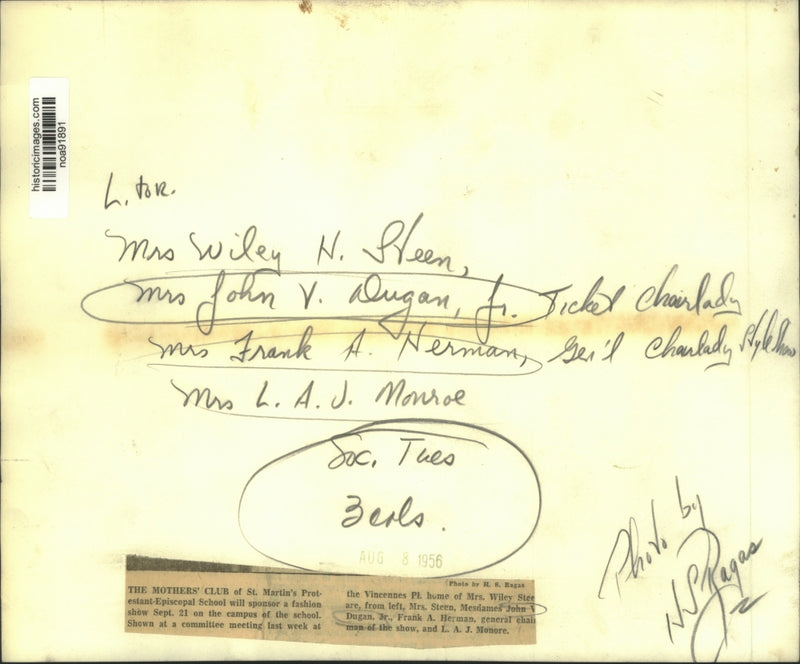 historicimages.com
noa91891
L. to R.
Mrs Wiley H. Steen,
Mrs John V. Dugan, Jr. Ticket Chairlady
Mrs Frank A. Herman, Gen'l Chairlady Style Show
Mrs L. A. J. Monroe
Soc. Tues
3 cols.
AUG 8 1956
Photo by
H S Ragas
THE MOTHERS' CLUB of St. Martin's Prot-
estant-Episcopal School will sponsor a fashion
show Sept. 21 on the campus of the school.
Shown at a committee meeting last week at
Photo by H. S. Ragas
the Vincennes Pl. home of Mrs. Wiley Stee
are, from left, Mrs. Steen, Mesdames John V
Dugan, Jr., Frank A. Herman, general chair
man of the show, and L. A. J. Monore.